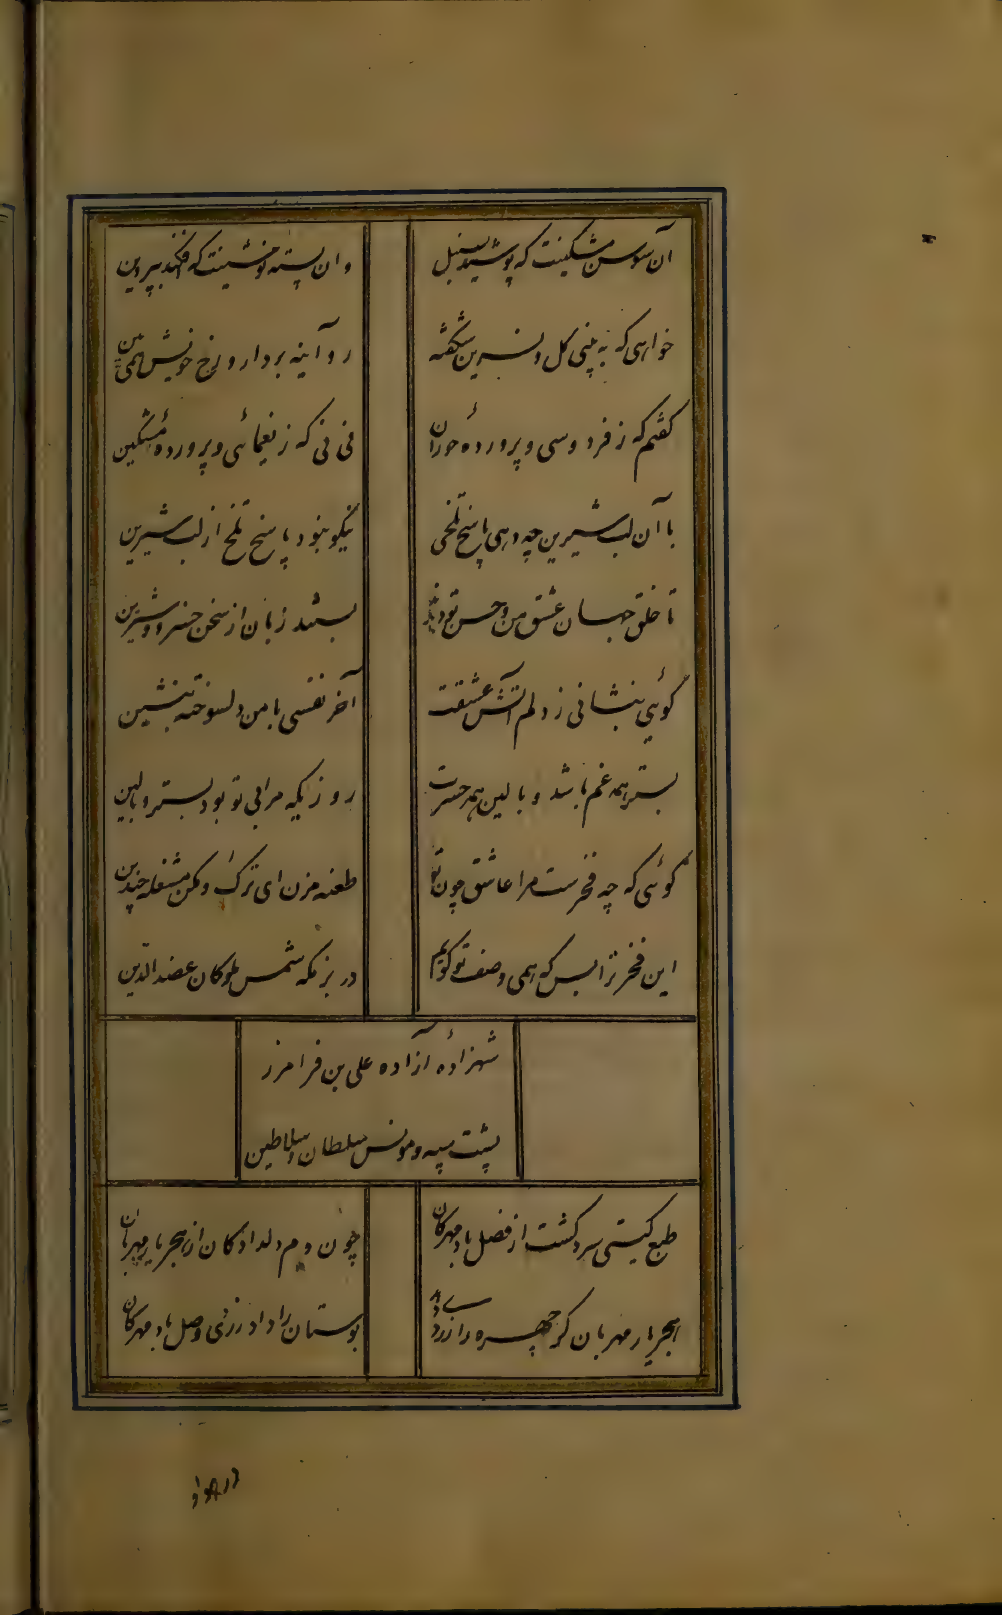 آن سوسن مشکینت که پوشید بسنبل
وان پسته نوشینت که افکند بپروین
خواهی که به بینی گل و نسرین شگفته
رو آینه بردار و رخ خویش همی بین
گفتم که ز فردوسی و پروردهٔ حوران
نی نی که ز یغمائی و پروردهٔ مشکین
با آن لب شیرین چه دهی پاسخ تلخی
نیکو نبود پاسخ تلخ از لب شیرین
تا خلق جهان عشق من و حسن تو دیدند
بستند زبان از سخن خسرو و شیرین
گوئی بنشانی ز دلم آتش عشقت
آخر نفسی با من دلسوخته بنشین
بستر همه غم باشد و بالین همه حسرت
روزیکه مرا بی تو بود بستر و بالین
گوئی که چه فخرست مرا عاشق چون تو
طعنه مزن ای ترک و مکن مشغله چندین
این فخر ترا بس که همی وصف تو گویم
در بزمگه شمس ملوکان عضدالدین
شهزادهٔ آزاده علی بن فرامرز
پشت سپه و مونس سلطان و سلاطین
طبع گیتی سرد گشت از فصل باد مهرکان
چون دم دلدادگان از هجر یار مهربان
هجر یار مهربان گر چهره را زردی دهد
بوستان را داد زردی وصل باد مهرکان